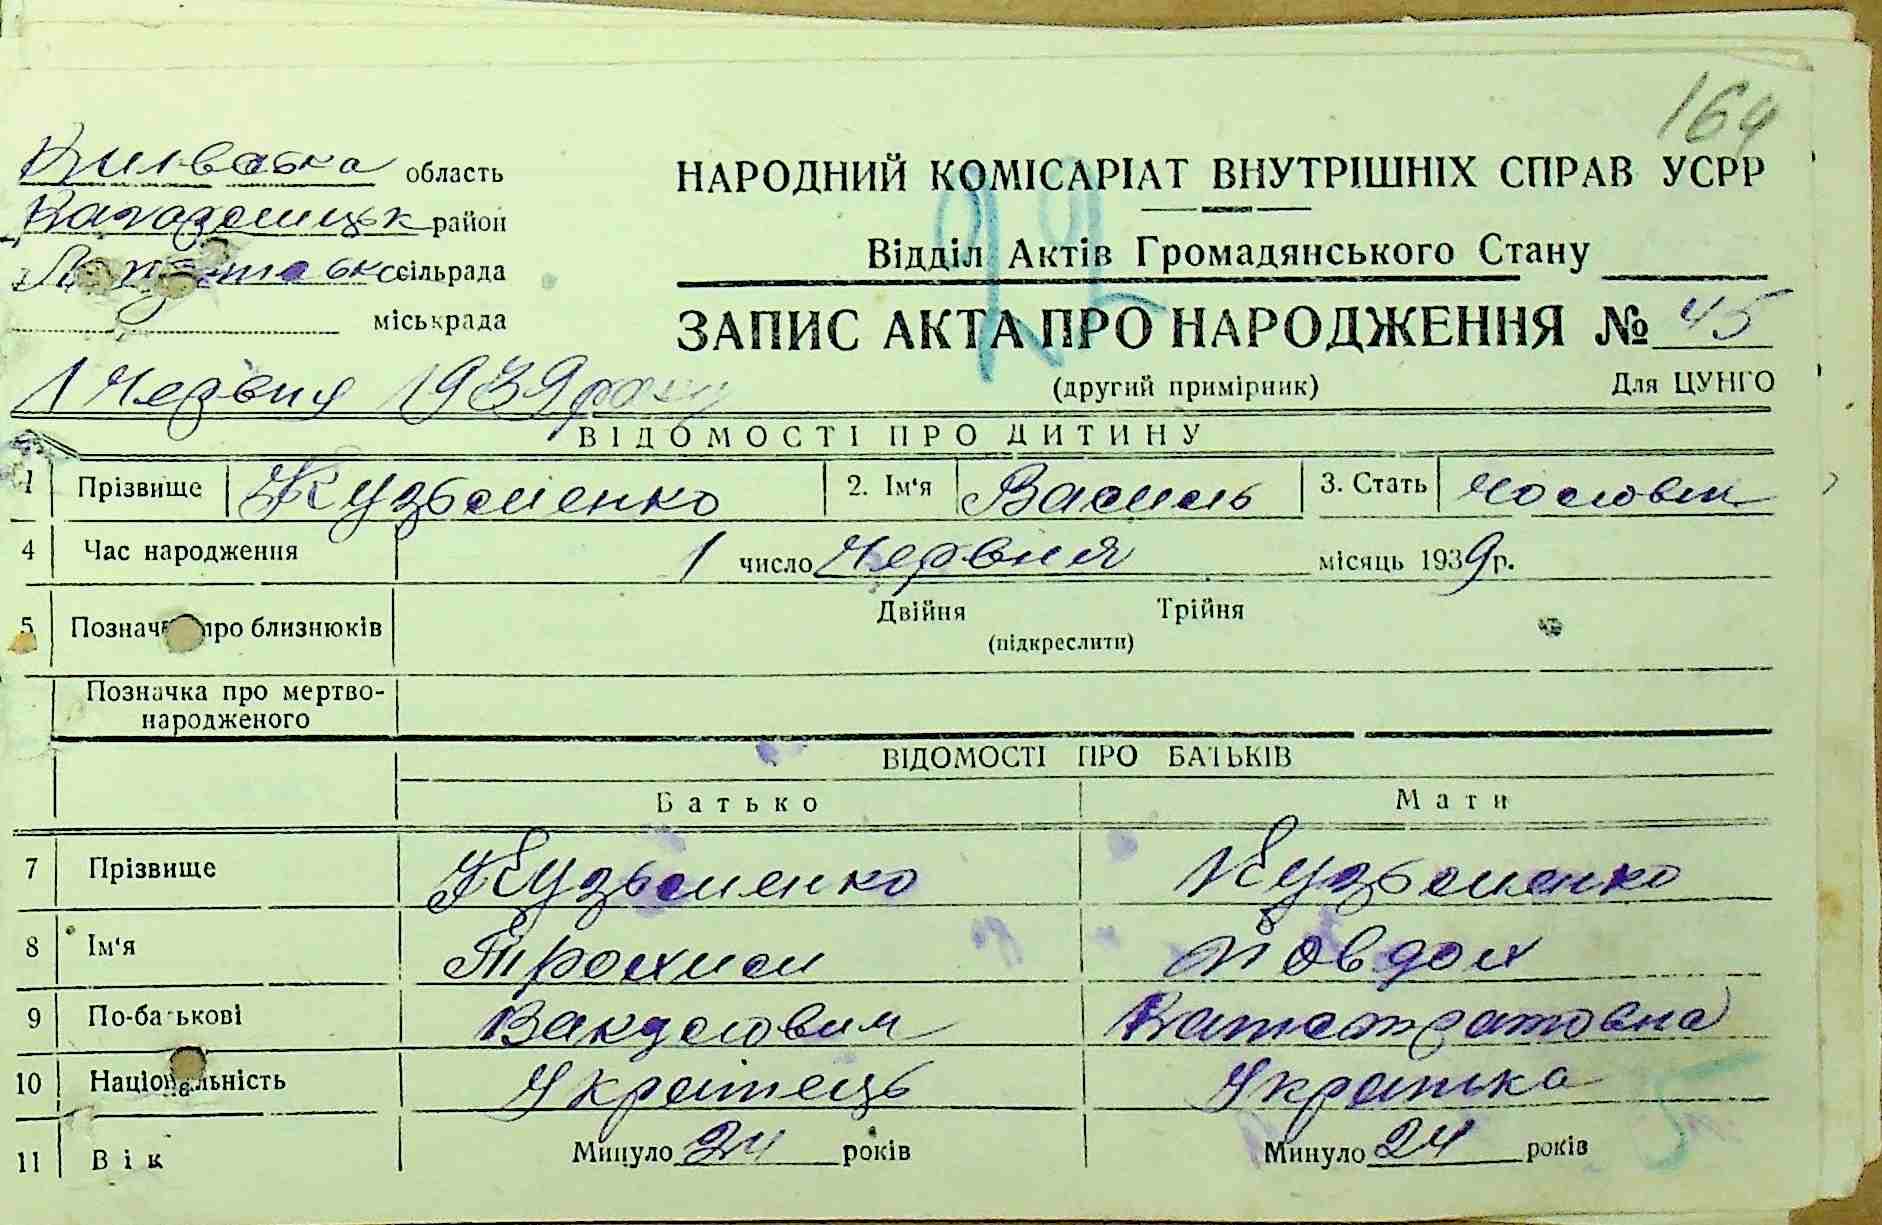 164
Київська область
район
сільрада
міськрада
НАРОДНИЙ КОМІСАРІАТ ВНУТРІШНІХ СПРАВ УСРР
Відділ Актів Громадянського Стану
ЗАПИС АКТА ПРО НАРОДЖЕННЯ № 45
(другий примірник) Для ЦУНГО
1 Червня 1939 року
ВІДОМОСТІ ПРО ДИТИНУ
1 Прізвище Кузьменко 2. Ім'я Василь 3. Стать
4 Час народження 1 число Червня місяць 1939 р.
5 Позначка про близнюків Двійня Трійня
(підкреслити)
Позначка про мертво-
народженого
ВІДОМОСТІ ПРО БАТЬКІВ
Батько Мати
7 Прізвище Кузьменко Кузьменко
8 Ім'я Трохим
9 По-батькові
10 Національність Українець Українка
11 Вік Минуло 24 років Минуло 24 років